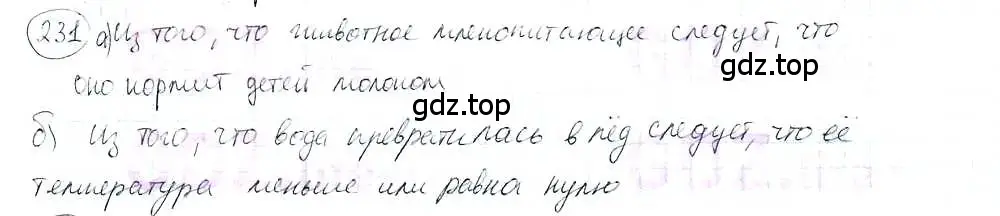 231 а) Из того, что животное млекопитающее следует, что
оно кормит детей молоком
gdz.top
gdz.top
б) Из того, что вода превратилась в лёд следует, что её
температура меньше или равна нулю
gdz.top